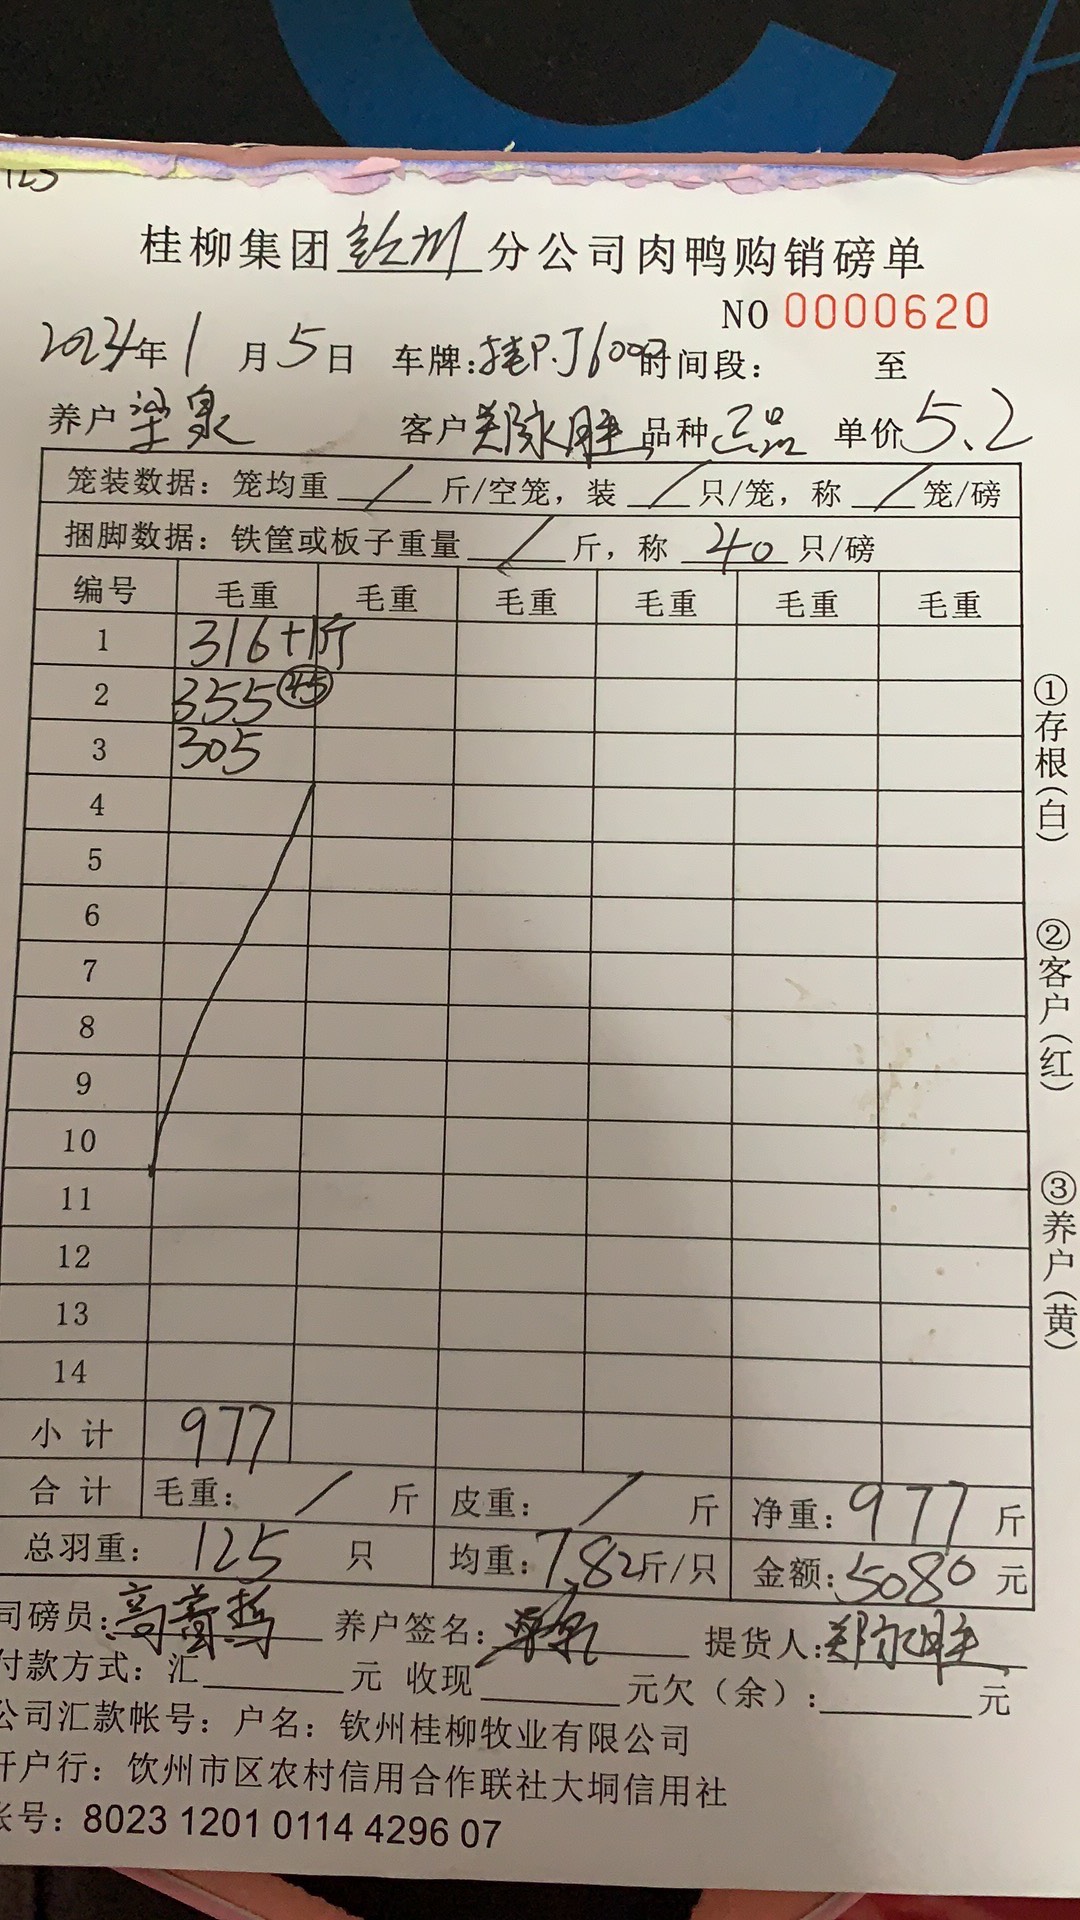 125
桂柳集团钦州分公司肉鸭购销磅单
NO 0000620
2024年1月5日 车牌:桂P.J6000 时间段: 至
养户 梁泉 客户 郑永胜 品种 正品 单价 5.2
笼装数据：笼均重 / 斤/空笼，装 / 只/笼，称 / 笼/磅
捆脚数据：铁筐或板子重量 / 斤，称 40 只/磅
编号 毛重 毛重 毛重 毛重 毛重 毛重
1 316+1斤
2 355 45
3 305
4
5
6
7
8
9
10
11
12
13
14
小计 977
合计 毛重: / 斤 皮重: / 斤 净重: 977 斤
总羽重: 125 只 均重: 7.82斤/只 金额: 5080 元
司磅员: 养户签名: 梁泉 提货人: 郑永胜
付款方式: 汇 元 收现 元欠（余）: 元
公司汇款帐号: 户名: 钦州桂柳牧业有限公司
开户行: 饮州市区农村信用合作联社大垌信用社
帐号: 8023 1201 0114 4296 07
①存根(白)
②客户(红)
③养户(黄)